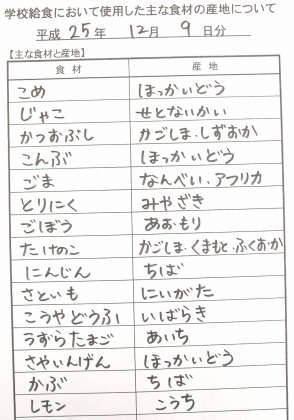 学校給食において使用した主な食材の産地について
平成 25年 12月 9日分
【主な食材と産地】
食材 産地
こめ ほっかいどう
じゃこ せとないかい
かつおぶし かごしま、しずおか
こんぶ ほっかいどう
ごま なんべい、アフリカ
とりにく みやざき
ごぼう あおもり
たけのこ かごしま、くまもと、ふくおか
にんじん ちば
さといも にいがた
こうやどうふ いばらき
うずらたまご あいち
さやいんげん ほっかいどう
かぶ ちば
レモン こうち